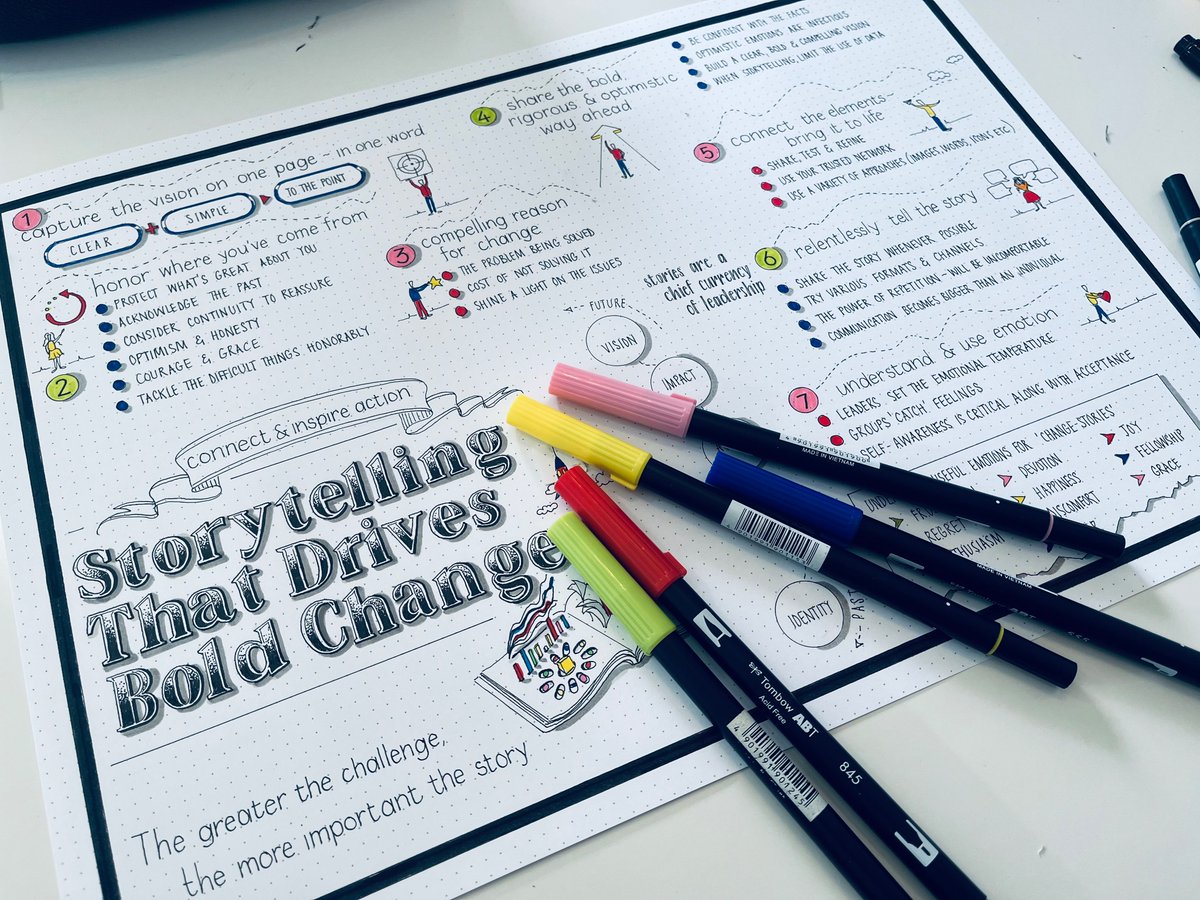 1
capture the vision on one page - in one word
CLEAR + SIMPLE ▸ TO THE POINT
2
honor where you've come from
PROTECT WHAT'S GREAT ABOUT YOU
ACKNOWLEDGE THE PAST
CONSIDER CONTINUITY TO REASSURE
OPTIMISM & HONESTY
COURAGE & GRACE
TACKLE THE DIFFICULT THINGS HONORABLY
3
compelling reason
for change
THE PROBLEM BEING SOLVED
COST OF NOT SOLVING IT
SHINE A LIGHT ON THE ISSUES
4
share the bold
rigorous & optimistic
way ahead
BE CONFIDENT WITH THE FACTS
OPTIMISTIC EMOTIONS ARE INFECTIOUS
BUILD A CLEAR, BOLD & COMPELLING VISION
WHEN STORYTELLING, LIMIT THE USE OF DATA
5
connect the elements -
bring it to life
SHARE, TEST & REFINE
USE YOUR TRUSTED NETWORK
USE A VARIETY OF APPROACHES (IMAGES, WORDS, ICONS ETC)
6
relentlessly tell the story
SHARE THE STORY WHENEVER POSSIBLE
TRY VARIOUS FORMATS & CHANNELS
THE POWER OF REPETITION - WILL BE UNCOMFORTABLE
COMMUNICATION BECOMES BIGGER THAN AN INDIVIDUAL
7
Understand & use emotion
LEADERS SET THE EMOTIONAL TEMPERATURE
GROUPS 'CATCH' FEELINGS
SELF-AWARENESS IS CRITICAL ALONG WITH ACCEPTANCE
USEFUL EMOTIONS FOR 'CHANGE-STORIES'
REGRET
DEVOTION
HAPPINESS
JOY
FELLOWSHIP
GRACE
stories are a
chief currency
of leadership
FUTURE
VISION
IMPACT
IDENTITY
PAST
connect & inspire action
Storytelling
That Drives
Bold Change
The greater the challenge,
the more important the story
MADE IN VIETNAM
MADE IN VIETNAM
Tombow ABT
Acid Free
845
4 901991 901245